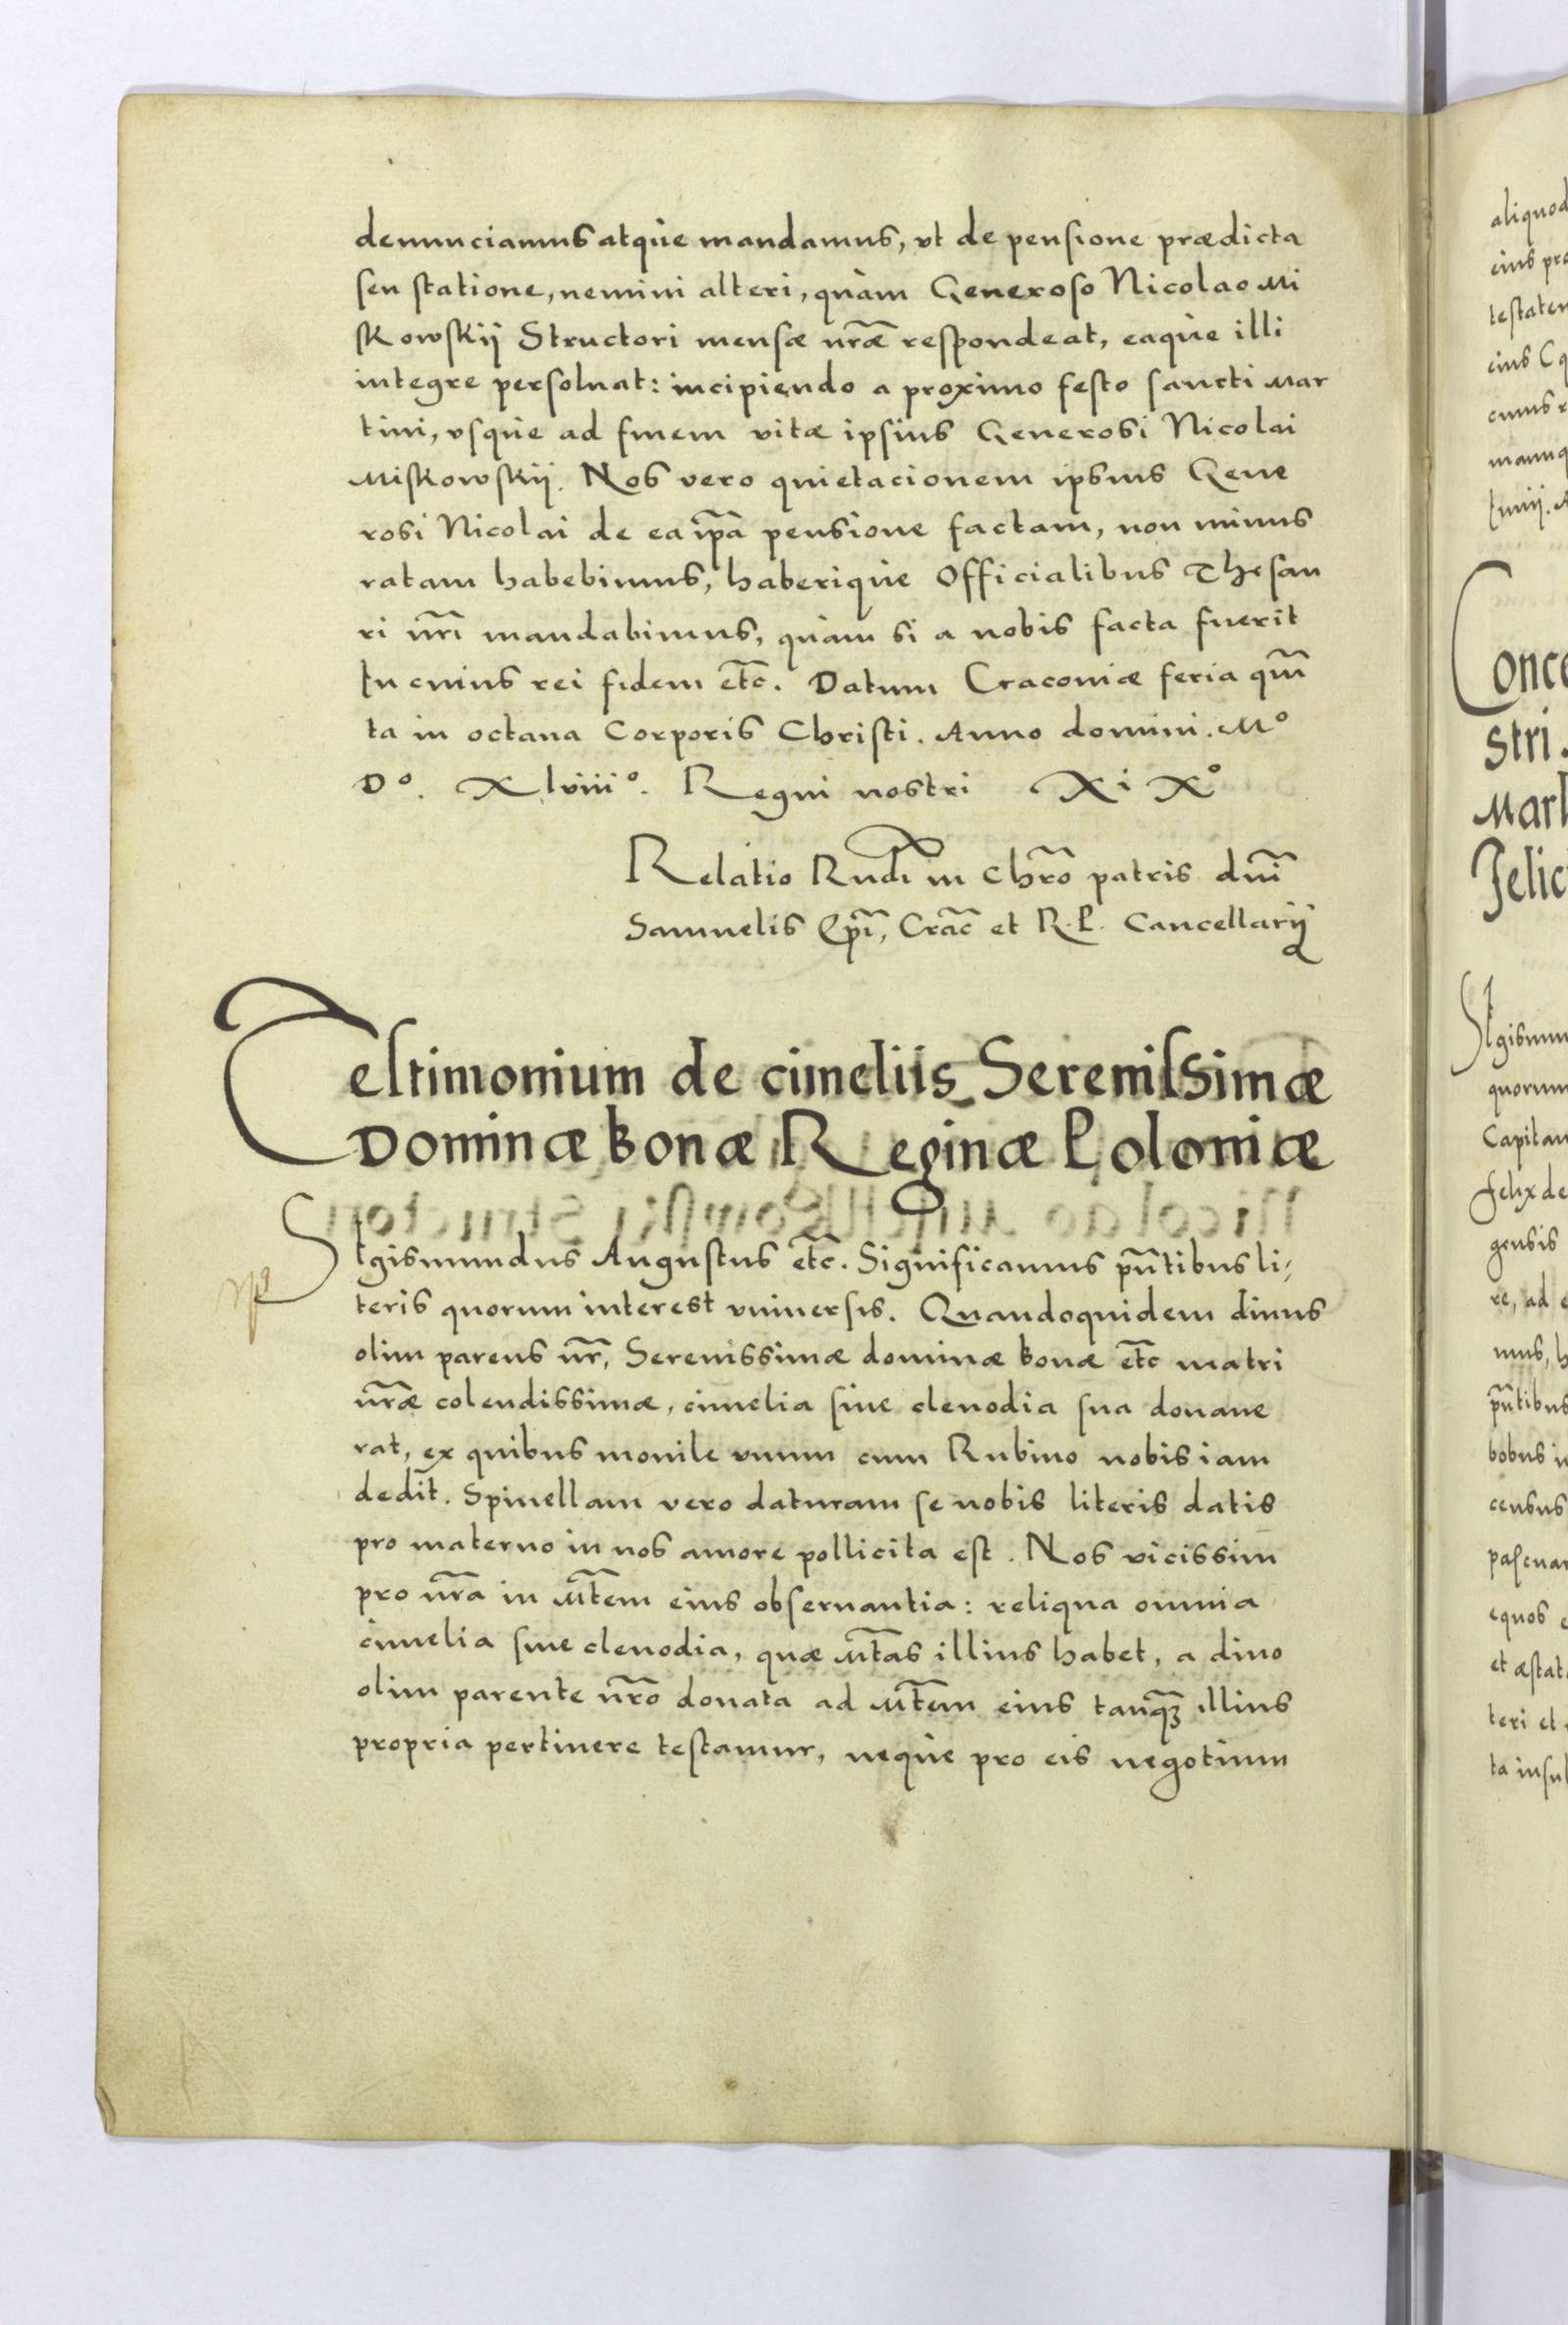 denunciamus atque mandamus, vt de pensione prædicta
seu statione, nemini alteri, quàm Generoso Nicolao Mi
skowskij Structori mensæ nr̃æ respondeat, eaque illi
integre persoluat: incipiendo a proximo festo sancti Mar
tini, vsque ad finem vitæ ipsius Generosi Nicolai
Miskowskij. Nos vero quietacionem ipsius Gene
rosi Nicolai de ea ip̃a pensione factam, non minus
ratam habebimus, haberique Officialibus Thesau
ri nr̃i mandabimus, quàm si a nobis facta fuerit
In cuius rei fidem etc̃. Datum Cracouiæ feria qui͂
ta in octaua Corporis Christi. Anno domini. Mº
Dº. Xlviiiº. Regni nostri XiXº
Relatio Rndi in Chr̃o patris dni͂
Samuelis Ep̃i, Crac̃ et R. P. Cancellarij
Testimonium de cimeliis Serenissimæ
Dominæ Bonæ Reginæ Poloniæ
Sigismundus Augustus etc̃. Significamus pñtibus li-
teris quorum interest vniuersis. Quandoquidem diuus
olim parens nr̃, Serenissimæ dominæ Bonæ etc̃ matri
nr̃æ colendissimæ, cimelia siue clenodia sua donaue
rat, ex quibus monile vnum cum Rubino nobis iam
dedit. Spinellam vero daturam se nobis literis datis
pro materno in nos amore pollicita est. Nos vicissim
pro nr̃a in Mt̃em eius obseruantia: reliqua omnia
cimelia siue clenodia, quæ Mt̃as illius habet, a diuo
olim parente nr̃o donata ad Mt̃em eius tanq̃ꝫ illius
propria pertinere testamur, neque pro eis negotium
aliquod
eius pr
testate
eius
cuius
manu
Iunij.
Conce
stri.
Mar
Felic
Sigismun
quorum
Capitan
Felix de
gensis
re, ad
mus, h
pñtibus
bobus
census
pascua
equos
et æstat
teri et
ta insu